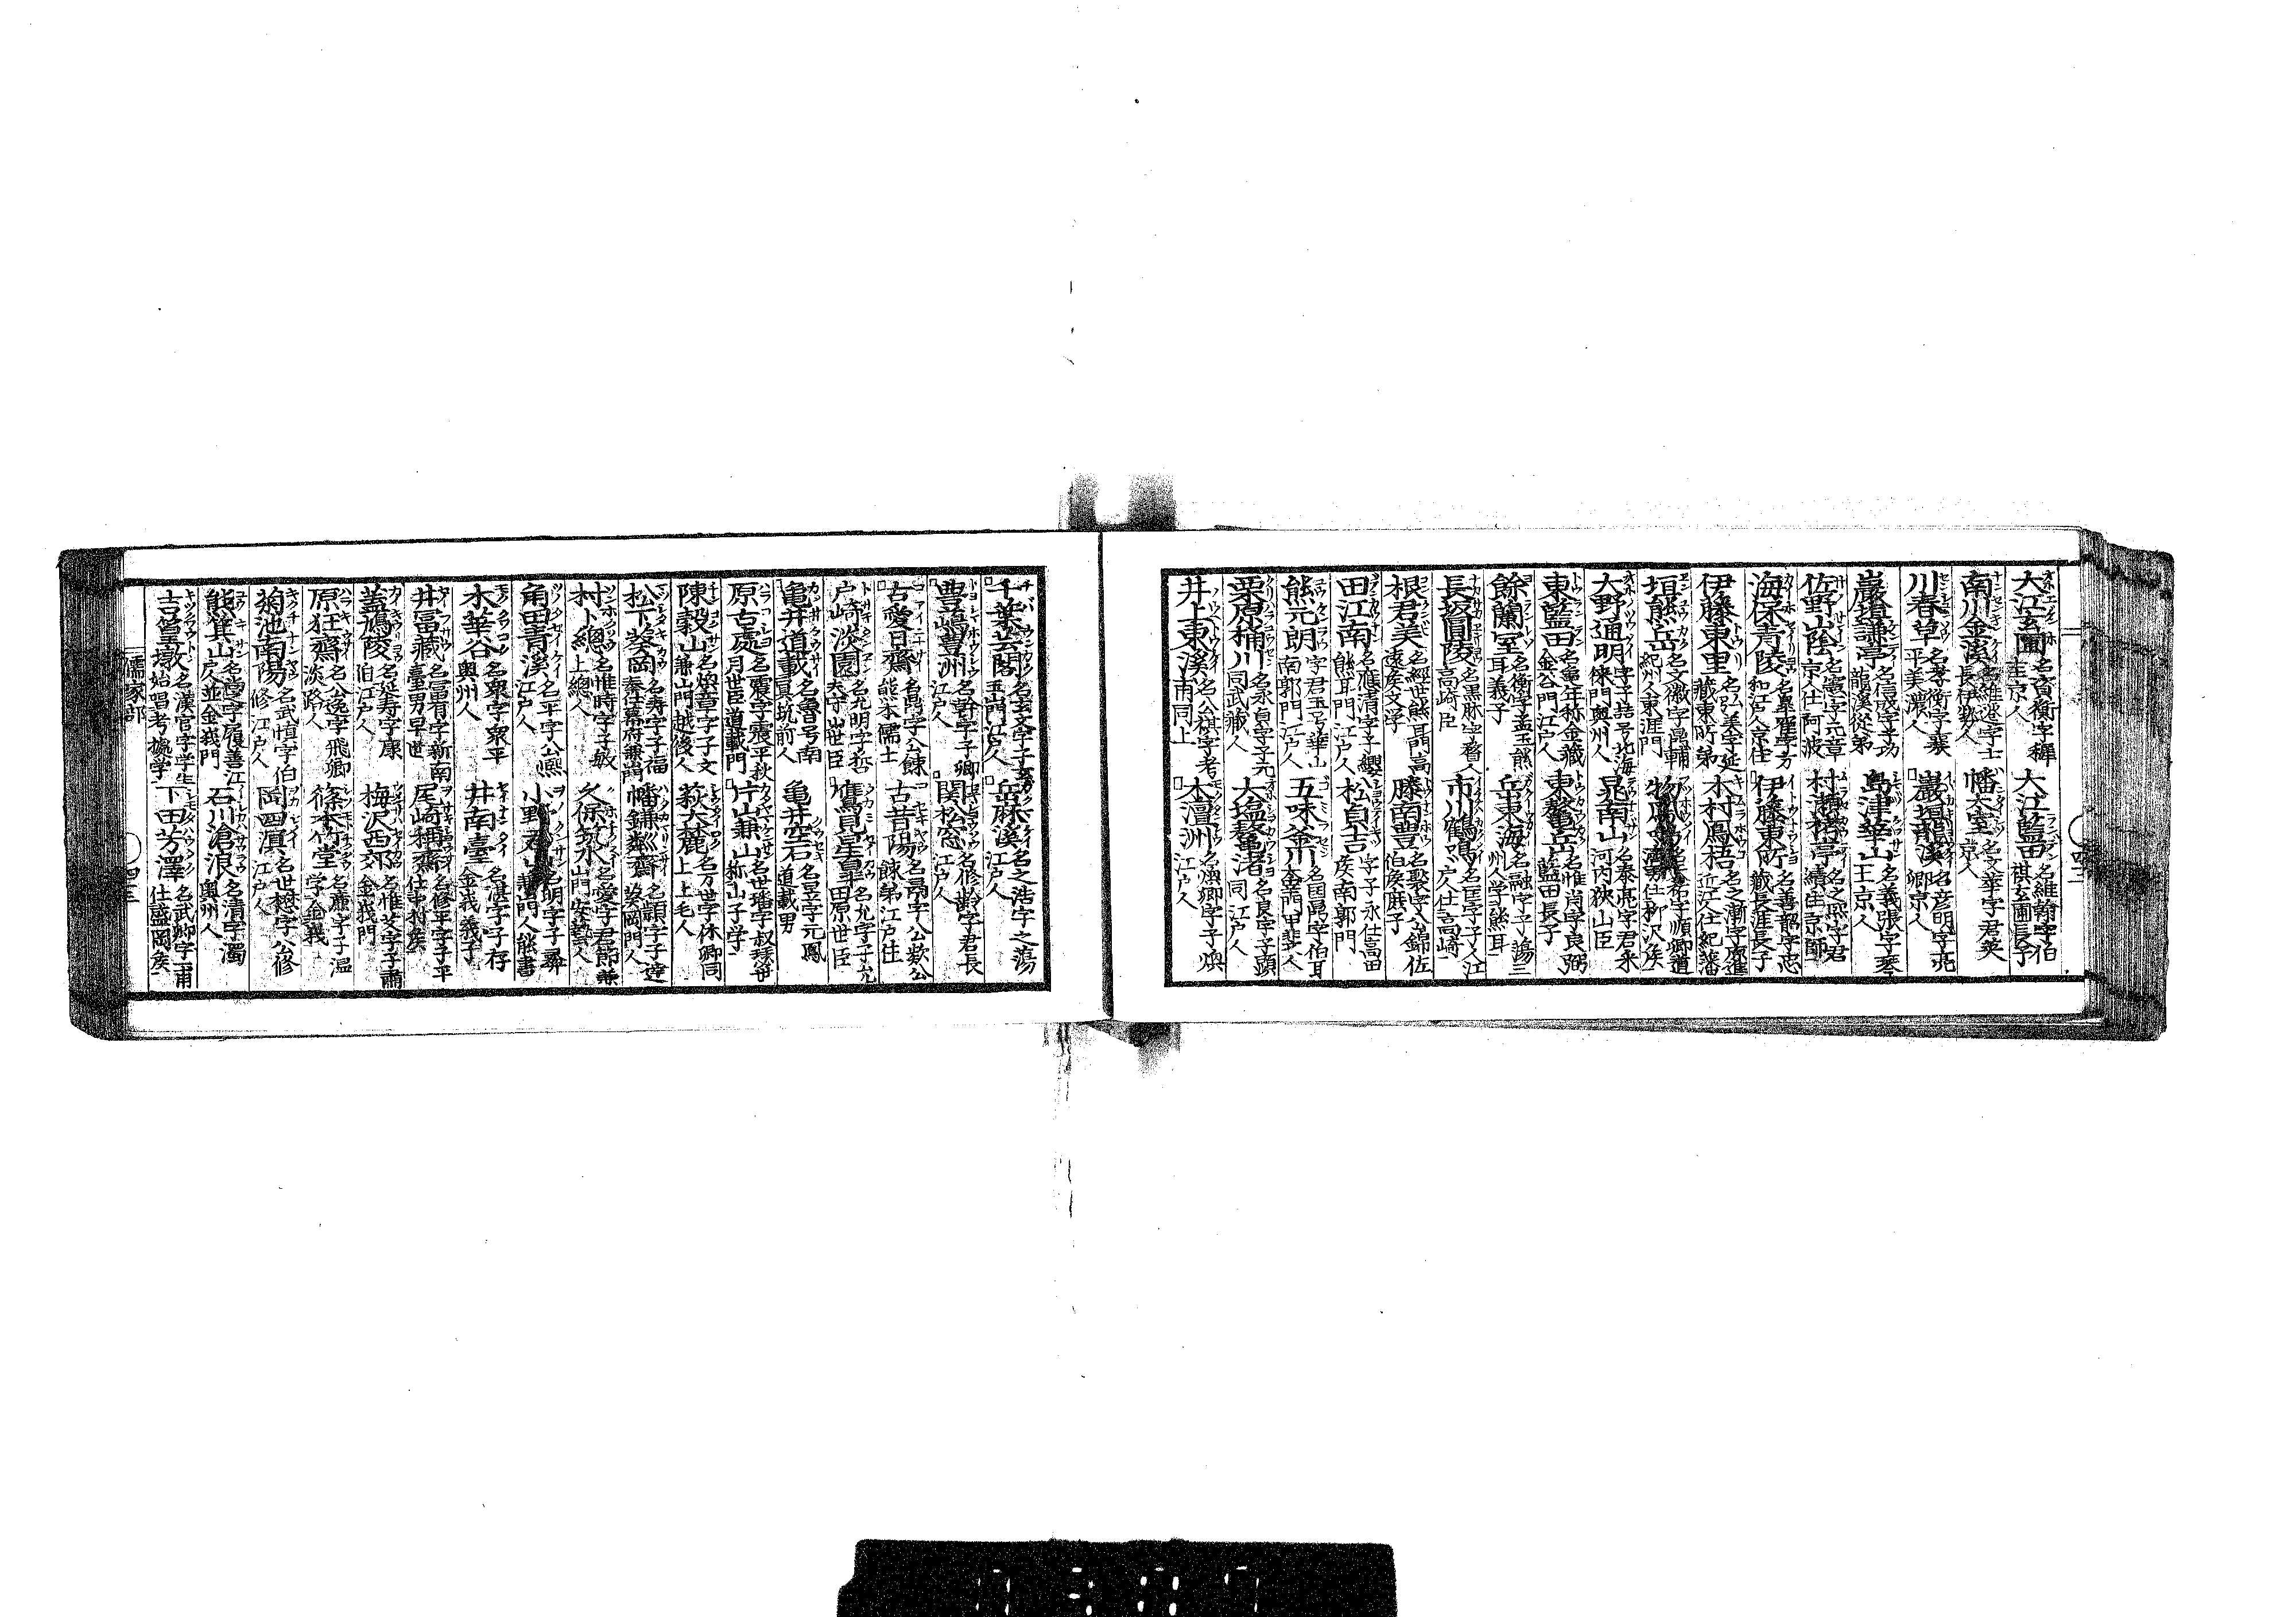 大江玄圃 名資衡字穉圭京人
大江藍田 名維翰字伯祺玄圃長子
南川金溪 名維遷字士長伊勢人
幡大室 名文華字君英京人
川春草 名孝衡字襄平美濃人
巖垣龍溪 名彦明字亮卿京人
巖垣謙亭 名信成字子功龍溪從弟
島津華山 名義張字琴王京人
佐野山陰 名憲字元章京人仕阿波
村瀬栲亭 名之熙字君績住京師
海保青陵 名皐雀字方和江戸人京住
伊藤東所 名善韶字忠藏長涯長子
伊藤東里 名弘美字延藏東所弟
木村鳳梧 名之漸字原進近江仕紀藩
垣熊岳 名文徽字昌輔紀州人東涯門
大野通明 字子語号北海徠門奥州人
晁南山 名泰亮字君采河内狹山臣
東藍田 名亀年称金藏金谷門江戸人
東鼇岳 名惟肖字良弼藍田長子
餘蘭室 名衡字孟玉熊耳義子
岳東海 名融字子陽三州人学熊耳
長坂圓陵 名黒肱字耆人高崎臣
市川鶴鳴 名匡字子人江戸人仕高崎
根君美 名經世熊耳門高遠矦文学
滕南豊 名聚字公錦佐伯矦庶子
田江南 名應清字子纓熊耳門江戸人
松貞吉 字子永仕高田矦南郭門
熊元朗 字君玉号華山南郭門江戸人
五味釜川 名国鼎字伯耳春䑓門甲斐人
栗原桶川 名永貞字子元同武藏人
大塩鼇渚 名良字子顕同江戸人
井上東溪 名公祺字考甫同上
木澶洲 名煥卿字子煥江戸人
千葉芸閣 名玄之字子玄玉山門江戸人
岳麻溪 名之浩字之蕩江戸人
豊嶋豊洲 名幹字子卿江戸人
関松窓 名修齢字君長江戸人
古愛日齋 名鬲字公餗熊本儒士
古昔陽 名鼎字公欽公餗弟江戸住
戸崎淡園 名允明字哲夫守山世臣
鷹見星皐 名允字子允田原世臣
亀井道載 名魯号南冥筑前人
亀井空石 名昱字元鳳道載男
原古處 名震字震平秋月世臣道載門
片山兼山 名世璠字叔瑟世称山子学
陳穀山 名煥章字子文兼山門越後人
萩大麓 名万世字休卿同上上毛人
松下葵岡 名寿字子福秦仕幕府兼山門
幡鎌巛齋 名顗字子達葵岡門人
村卜總 名惟時字子敏上總人
久保筑水 名愛字君節兼山門安藝人
角田青溪 名平字公熙江戸人
木華谷 名衆字衆平奥州人
井南臺 名湛字子存金我義子
井富藏 名富有字新南臺男早世
尾崎稱齋 名修平字子平仕中村矦
蓋鳩陵 名延寿字康伯江戸人
梅沢西郊 名惟芝字子肅金我門
原狂齋 名公逸字飛卿淡路人
篠本竹堂 名廉字子温学金義
菊池南陽 名武恒字伯修江戸人
岡四溟 名世懋字公修江戸人
熊箕山 名尚之字履善江戸人並金我門
石川滄浪 名清字濁奥州人
吉篁墩 名漢官字学生始唱考據学
下田芳澤 名武卿字一甫仕盛岡矦
儒家部
四三